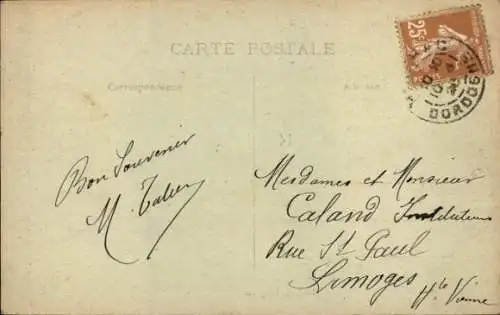 CARTE POSTALE
Correspondance
Adresse
25c
DORDOGNE
Bon Souvenir
M.
Mesdames et Monsieur
Caland Instituteur
Rue St Paul
Limoges
Hte Vienne